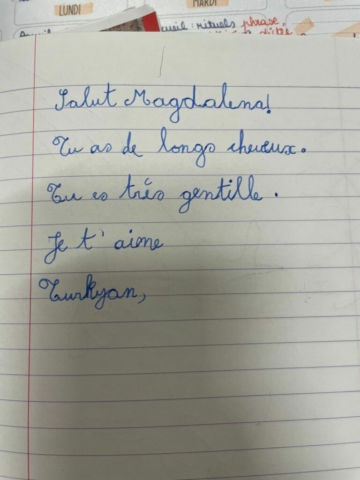 LUNDI
MARDI
accueil : rituels phrase.
Salut Magdalena!
Tu as de longs cheveux.
Tu es très gentille.
Je t'aime
Turkyan,